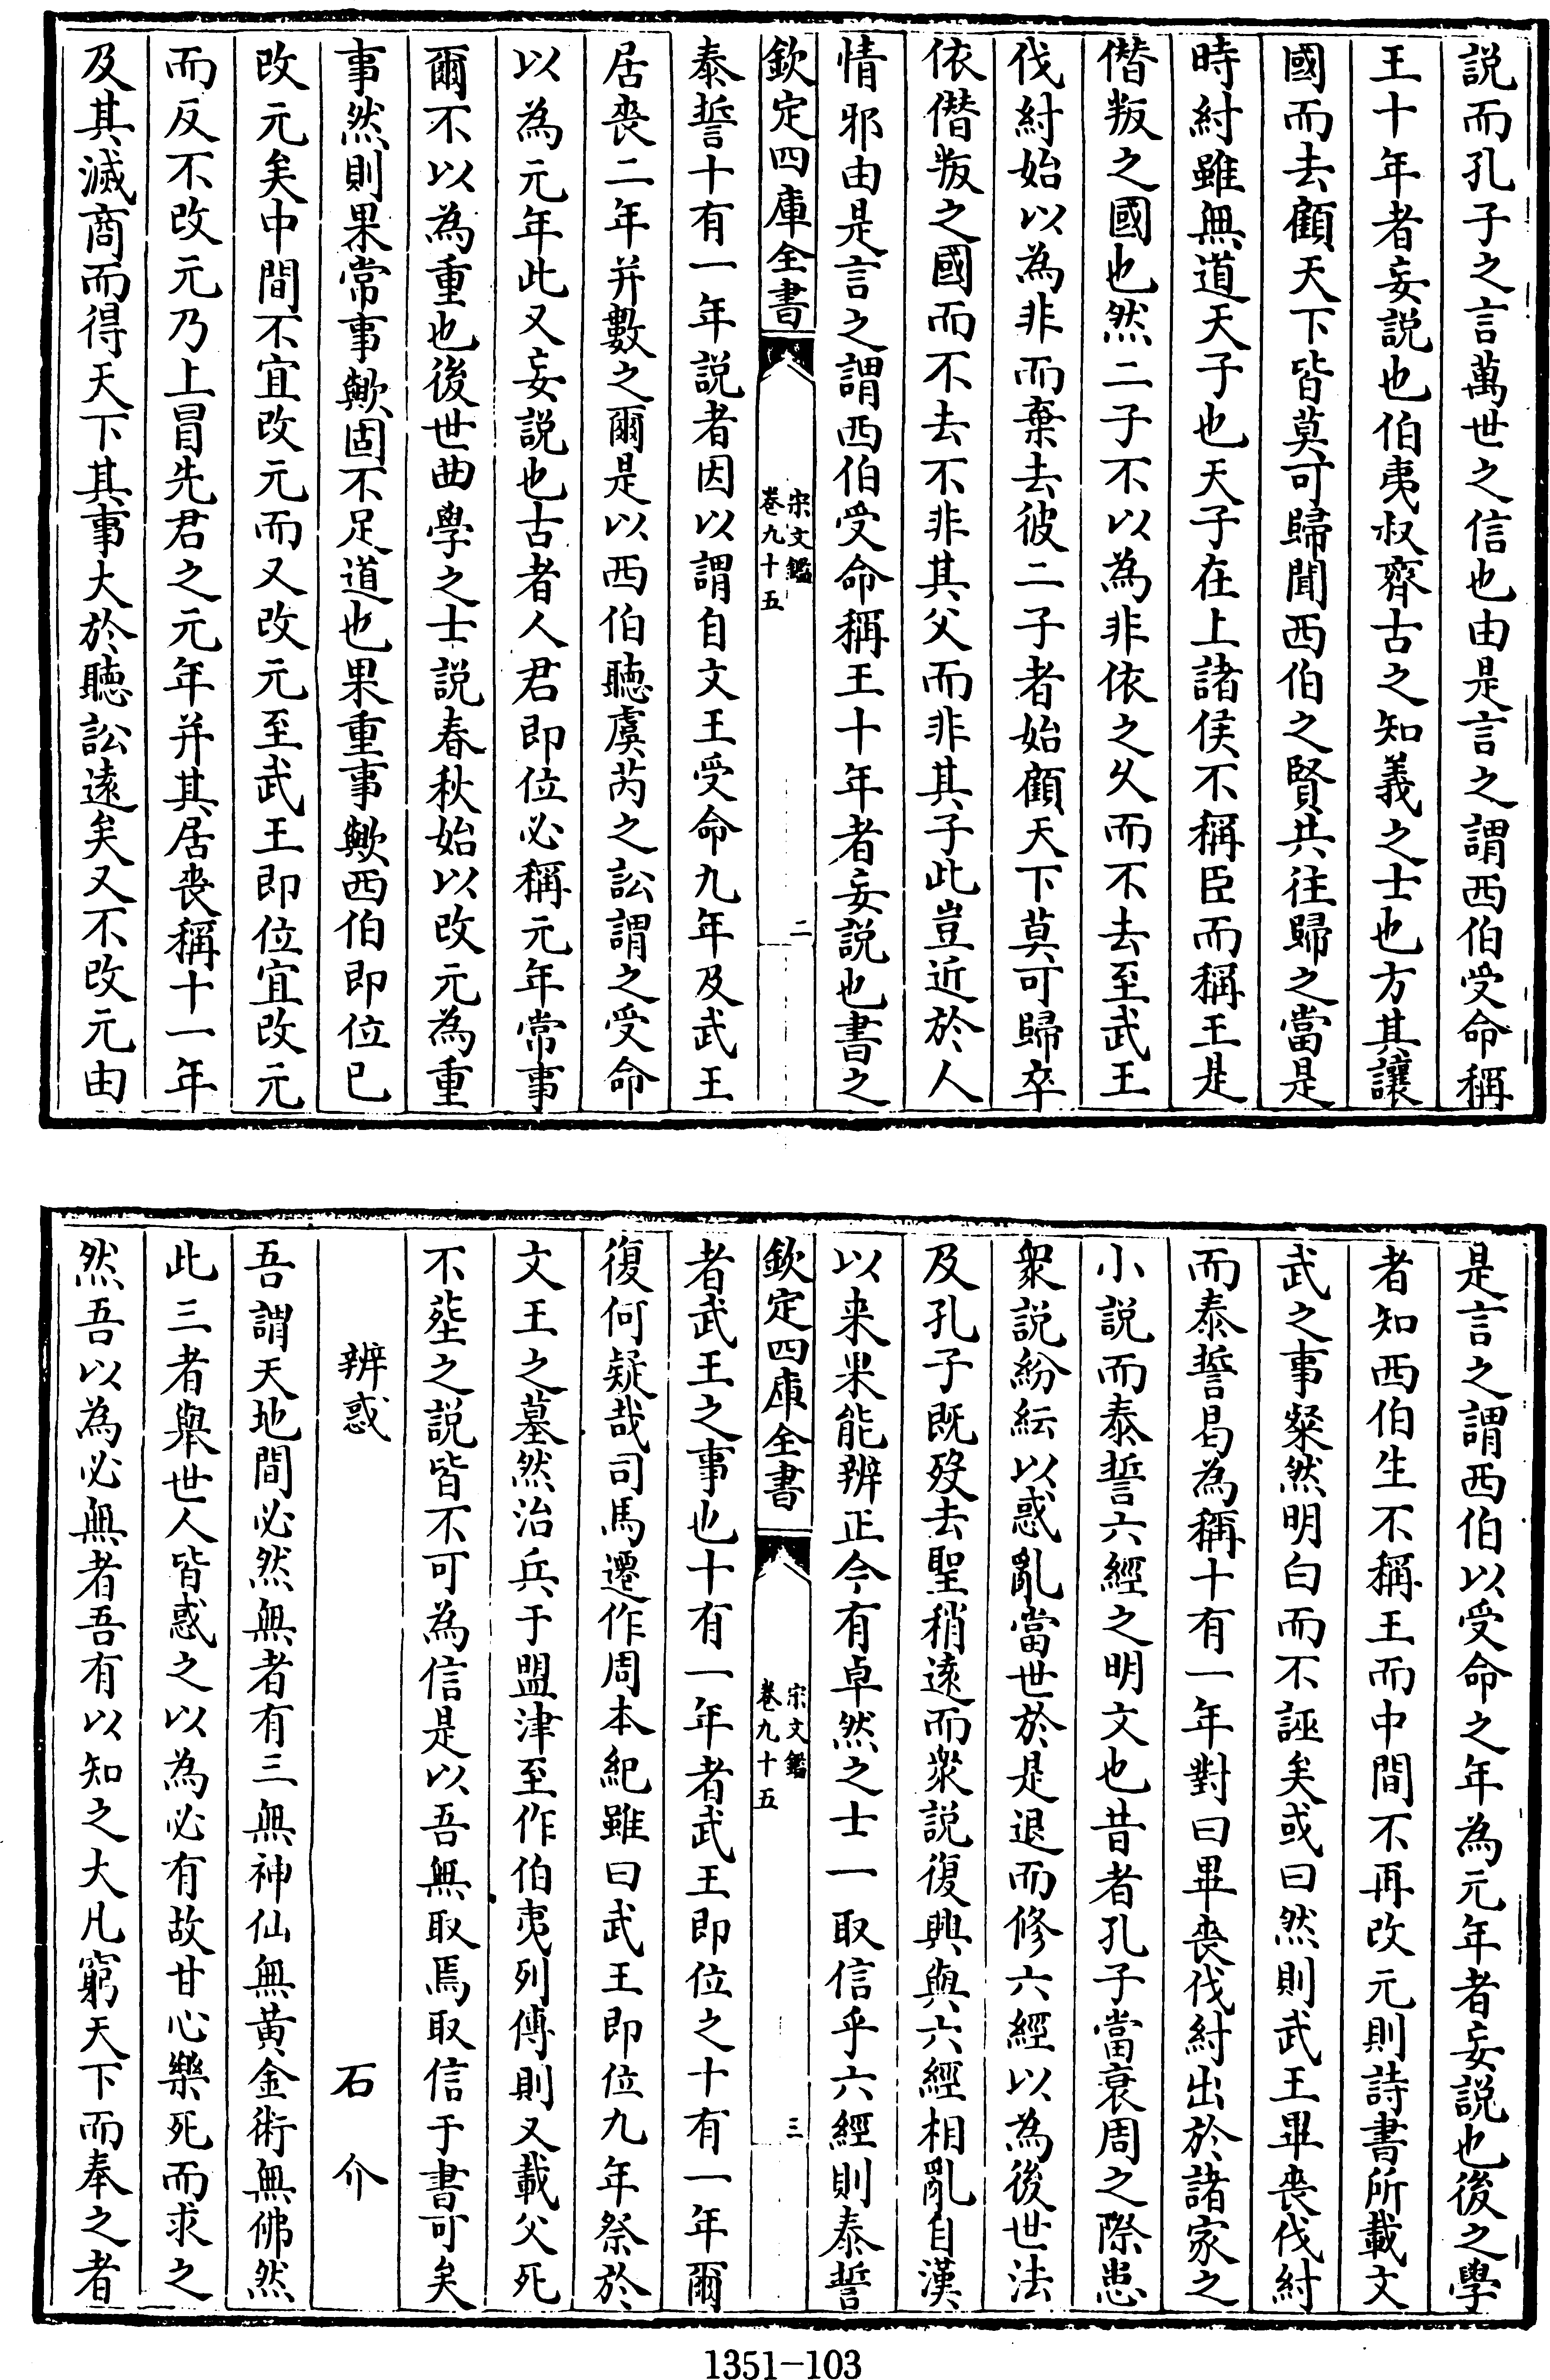 説而孔子之言萬世之信也由是言之謂西伯受命稱
王十年者妄説也伯夷叔齊古之知義之士也方其讓
國而去顧天下皆莫可歸聞西伯之賢共往歸之當是
時紂雖無道天子也天子在上諸侯不稱臣而稱王是
僭叛之國也然二子不以為非依之乆而不去至武王
伐紂始以為非而棄去彼二子者始顧天下莫可歸卒
依僭叛之國而不去不非其父而非其子此豈近於人
情邪由是言之謂西伯受命稱王十年者妄説也書之
欽定四庫全書
宋文鑑
卷九十五
二
泰誓十有一年説者因以謂自文王受命九年及武王
居喪二年并數之爾是以西伯聽虞芮之訟謂之受命
以為元年此又妄説也古者人君即位必稱元年常事
爾不以為重也後世曲學之士説春秋始以改元為重
事然則果常事歟固不足道也果重事歟西伯即位已
改元矣中間不宜改元而又改元至武王即位宜改元
而反不改元乃上冒先君之元年并其居喪稱十一年
及其滅商而得天下其事大於聽訟逺矣又不改元由
是言之謂西伯以受命之年為元年者妄説也後之學
者知西伯生不稱王而中間不再改元則詩書所載文
武之事粲然明白而不誣矣或曰然則武王畢喪伐紂
而泰誓曷為稱十有一年對曰畢喪伐紂出於諸家之
小説而泰誓六經之明文也昔者孔子當衰周之際患
衆説紛紜以惑亂當世於是退而修六經以為後世法
及孔子既殁去聖稍逺而衆説復興與六經相亂自漢
以来果能辨正今有卓然之士一取信乎六經則泰誓
欽定四庫全書
宋文鑑
卷九十五
三
者武王之事也十有一年者武王即位之十有一年爾
復何疑哉司馬遷作周本紀雖曰武王即位九年祭於
文王之墓然治兵于盟津至作伯夷列傳則又載父死
不塟之説皆不可為信是以吾無取焉取信于書可矣
辨惑 石介
吾謂天地間必然無者有三無神仙無黄金術無佛然
此三者舉世人皆惑之以為必有故甘心樂死而求之
然吾以為必無者吾有以知之大凡窮天下而奉之者
1351-103